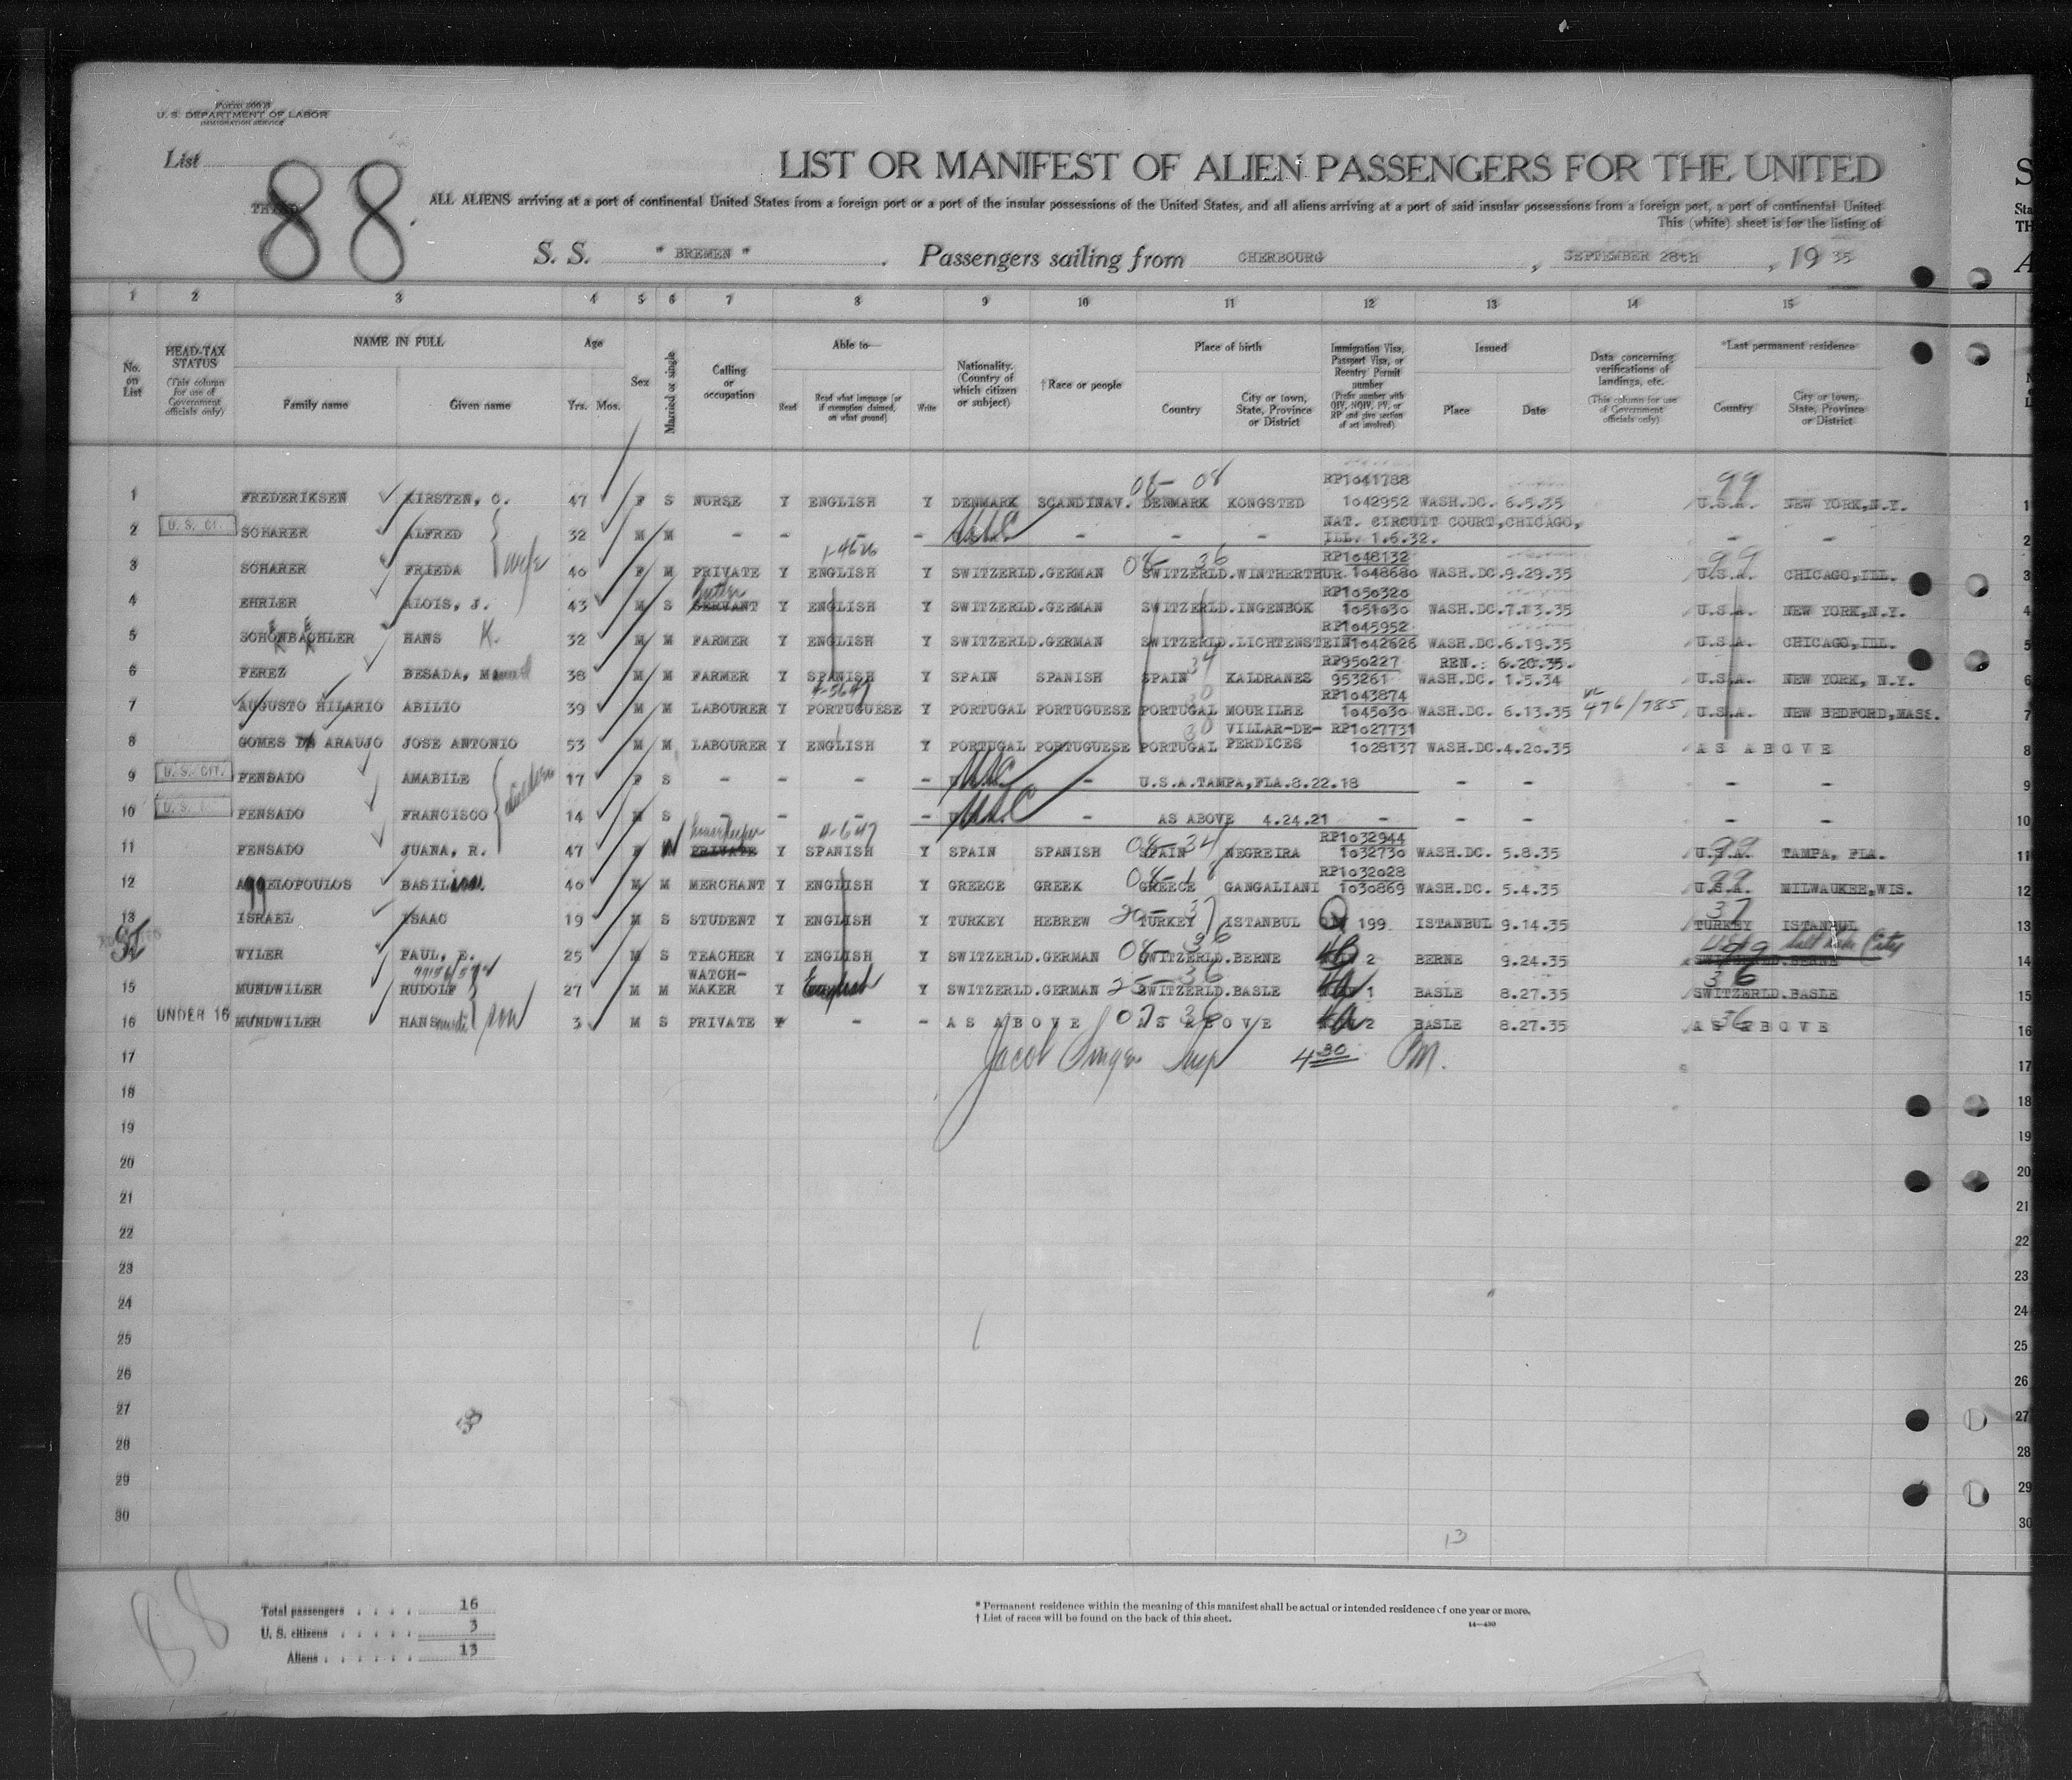 Form 500 B
U. S. DEPARTMENT OF LABOR
IMMIGRATION SERVICE
List
88
THIRD
LIST OR MANIFEST OF ALIEN PASSENGERS FOR THE UNITED
ALL ALIENS arriving at a port of continental United States from a foreign port or a port of the insular possessions of the United States, and all aliens arriving at a port of said insular possessions from a foreign port, a port of continental United
This (white) sheet is for the listing of
S. S. " BREMEN " . Passengers sailing from CHERBOURG , SEPTEMBER 28th , 19 35
1 2 3 4 5 6 7 8 9 10 11 12 13 14 15
No. on List
HEAD-TAX STATUS (This column for use of Government officials only)
NAME IN FULL Family name Given name
Age Yrs. Mos.
Sex
Married or single
Calling or occupation
Able to— Read Read what language [or if exemption claimed, on what ground] Write
Nationality. (Country of which citizen or subject)
†Race or people
Place of birth Country City or town, State, Province or District
Immigration Visa, Passport Visa, or Reentry Permit number (Prefix number with QIV, NQIV, PV, or RP and give section of act involved)
Issued Place Date
Data concerning verifications of landings, etc. (This column for use of Government officials only)
*Last permanent residence Country City or town, State, Province or District
08-08 RP1041788 99
1 FREDERIKSEN KIRSTEN, C. 47 F S NURSE Y ENGLISH Y DENMARK SCANDINAV. DENMARK KONGSTED 1042952 WASH.DC. 6.5.35 U.S.A. NEW YORK,N.Y. 1
NAT. CIRCUIT COURT,CHICAGO,
2 U.S. CIT. SCHARER ALFRED 32 M M - - - - USC - - - ILL. 1.6.32. - - 2
wife 08-36 RP1048132 99
3 SCHARER FRIEDA 40 F M PRIVATE Y ENGLISH Y SWITZERLD.GERMAN SWITZERLD.WINTHERTHUR 1048680 WASH.DC.9.29.35 U.S.A. CHICAGO,ILL. 3
Butler RP1050320
4 EHRLER ALOIS, J. 43 M S SERVANT Y ENGLISH Y SWITZERLD.GERMAN SWITZERLD.INGENBOK 1051030 WASH.DC.7.13.35 U.S.A. NEW YORK,N.Y. 4
RP1045952
5 SCHONBACHLER HANS K. 32 M M FARMER Y ENGLISH Y SWITZERLD.GERMAN SWITZERLD.LICHTENSTEIN 1042626 WASH.DC.6.19.35 U.S.A. CHICAGO,ILL. 5
34 RP950227 REN.: 6.20.35.
6 PEREZ BESADA, Manuel 38 M M FARMER Y SPANISH Y SPAIN SPANISH SPAIN KALDRANES 953261 WASH.DC. 1.5.34 U.S.A. NEW YORK, N.Y. 6
30 RP1043874
7 AUGUSTO HILARIO ABILIO 39 M M LABOURER Y PORTUGUESE Y PORTUGAL PORTUGUESE PORTUGAL MOURILHE 1045030 WASH.DC. 6.13.35 476/785 U.S.A. NEW BEDFORD,MASS. 7
30 VILLAR-DE- RP1027731
8 GOMES DA ARAUJO JOSE ANTONIO 53 M M LABOURER Y ENGLISH Y PORTUGAL PORTUGUESE PORTUGAL PERDICES 1028137 WASH.DC.4.20.35 AS ABOVE 8
9 U.S. CIT. PENSADO AMABILE 17 F S - - - - USC - U.S.A.TAMPA,FLA.8.22.18 - - - - 9
children
10 U.S. PENSADO FRANCISCO 14 M S - - - - USC - AS ABOVE 4.24.21 - - - - - 10
housekeeper 08-34 RP1032944 99
11 PENSADO JUANA, R. 47 F W PRIVATE Y SPANISH Y SPAIN SPANISH SPAIN NEGREIRA 1032730 WASH.DC. 5.8.35 U.S.A. TAMPA, FLA. 11
08-18 RP1032028 99
12 ANGELOPOULOS BASIL 40 M M MERCHANT Y ENGLISH Y GREECE GREEK GREECE GANGALIANI 1030869 WASH.DC. 5.4.35 U.S.A. MILWAUKEE,WIS. 12
20-37 37
13 ISRAEL ISAAC 19 M S STUDENT Y ENGLISH Y TURKEY HEBREW TURKEY ISTANBUL Q 199 ISTANBUL 9.14.35 TURKEY ISTANBUL 13
08-36 Salt Lake City
WYLER PAUL, E. 25 M S TEACHER Y ENGLISH Y SWITZERLD.GERMAN SWITZERLD.BERNE 2 BERNE 9.24.35 SWITZERLD.BERNE 14
WATCH- 25-36 36
15 MUNDWILER RUDOLF 27 M M MAKER Y English Y SWITZERLD.GERMAN SWITZERLD.BASLE 1 BASLE 8.27.35 SWITZERLD.BASLE 15
16 UNDER 16 MUNDWILER HANS son 3 M S PRIVATE - - AS ABOVE AS ABOVE 2 BASLE 8.27.35 AS ABOVE 16
17 Jacob Singer Insp 4 30 PM. 17
18 18
19 19
20 20
21 21
22 22
23 23
24 24
25 25
26 26
27 27
28 28
29 29
30 30
13
88
Total passengers . . . . 16
U. S. citizens . . . . . 3
Aliens . . . . . . 13
* Permanent residence within the meaning of this manifest shall be actual or intended residence of one year or more.
† List of races will be found on the back of this sheet.
14—430